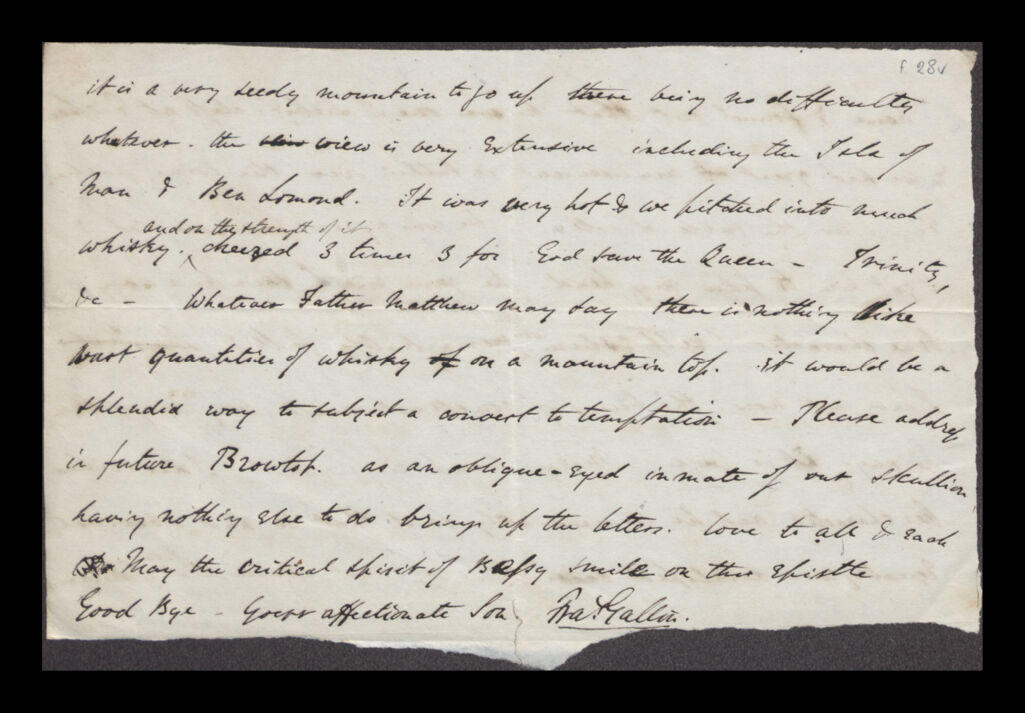 f 28v
it is a very seedy mountain to go up there being no difficulty
whatever. the view view is very Extensive including the Isle of
Man & Ben Lomond. It was very hot & we pitched into much
and on the strength of it
whisky. cheered 3 times 3 for God save the Queen – Trinity,
&c – Whatever Father Matthew may say there is nothing like
vast quantities of whisky of on a mountain top. it would be a
splendid way to subject a convert to temptation – Please address
in future Browtop. as an oblique-Eyed inmate of our skullion
having nothing Else to do brings up the letters. love to all & each
May the critical spirit of Bessy smile on this Epistle
Good Bye – Your affectionate Son Fra: Galton.